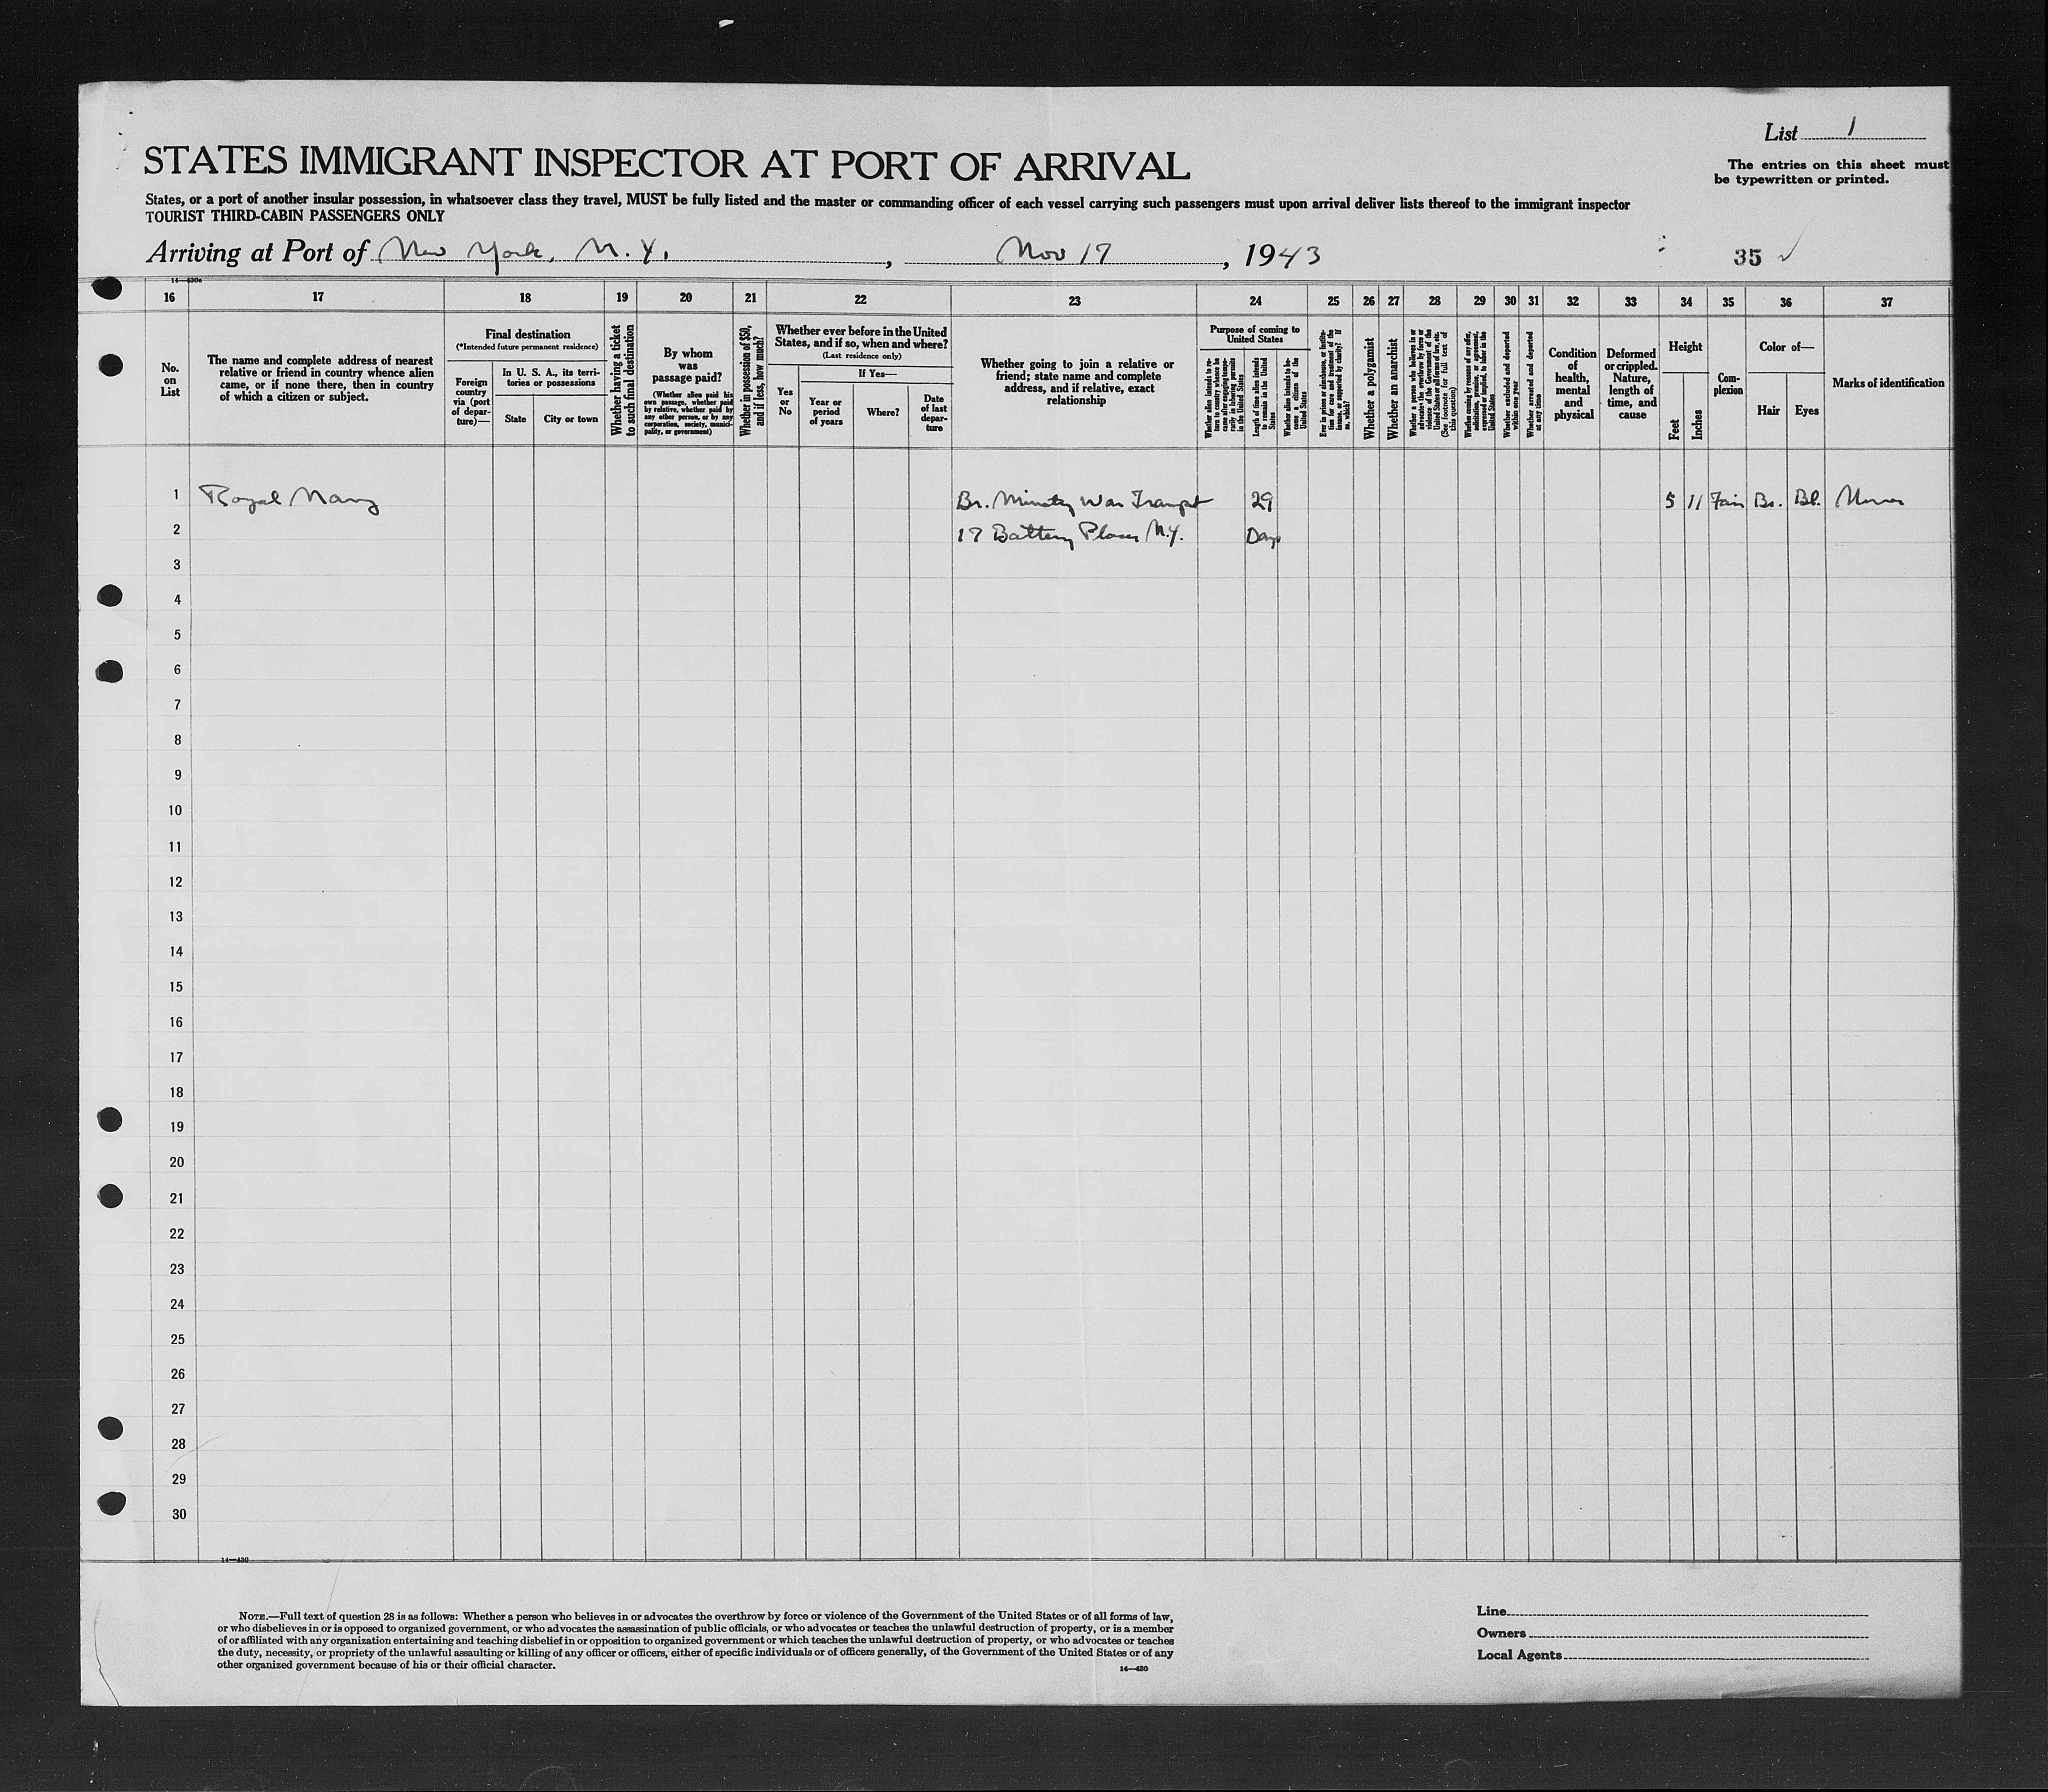 List 1
STATES IMMIGRANT INSPECTOR AT PORT OF ARRIVAL
The entries on this sheet must
be typewritten or printed.
States, or a port of another insular possession, in whatsoever class they travel, MUST be fully listed and the master or commanding officer of each vessel carrying such passengers must upon arrival deliver lists thereof to the immigrant inspector
TOURIST THIRD-CABIN PASSENGERS ONLY
Arriving at Port of New York, N.Y., Nov 17, 1943
35 ✓
14—430a
16 17 18 19 20 21 22 23 24 25 26 27 28 29 30 31 32 33 34 35 36 37
No.
on
List
The name and complete address of nearest
relative or friend in country whence alien
came, or if none there, then in country
of which a citizen or subject.
Final destination
(*Intended future permanent residence)
Foreign
country
via (port
of depar-
ture)—
In U. S. A., its terri-
tories or possessions
State
City or town
Whether having a ticket
to such final destination
By whom
was
passage paid?
(Whether alien paid his
own passage, whether paid
by relative, whether paid by
any other person, or by any
corporation, society, munici-
pality, or government)
Whether in possession of $50,
and if less, how much?
Whether ever before in the United
States, and if so, when and where?
(Last residence only)
Yes
or
No
If Yes—
Year or
period
of years
Where?
Date
of last
depar-
ture
Whether going to join a relative or
friend; state name and complete
address, and if relative, exact
relationship
Purpose of coming to
United States
Whether alien intends to re-
turn to country whence he
came after engaging tempo-
rarily in laboring pursuits
in the United States
Length of time alien intends
to remain in the United
States
Whether alien intends to be-
come a citizen of the
United States
Ever in prison or almshouse, or institu-
tion for care and treatment of the
insane, or supported by charity? If
so, which?
Whether a polygamist
Whether an anarchist
Whether a person who believes in or
advocates the overthrow by force or
violence of the Government of the
United States or all forms of law, etc.
(See footnote for full text of
this question)
Whether coming by reason of any offer,
solicitation, promise, or agreement,
expressed or implied, to labor in the
United States
Whether excluded and deported
within one year
Whether arrested and deported
at any time
Condition
of
health,
mental
and
physical
Deformed
or crippled.
Nature,
length of
time, and
cause
Height
Feet
Inches
Com-
plexion
Color of—
Hair
Eyes
Marks of identification
1 Royal Navy Br. Ministry War Transpt 29 5 11 Fair Br. Bl.
2 17 Battery Place N.Y. Days
3
4
5
6
7
8
9
10
11
12
13
14
15
16
17
18
19
20
21
22
23
24
25
26
27
28
29
30
14—430
NOTE.—Full text of question 28 is as follows: Whether a person who believes in or advocates the overthrow by force or violence of the Government of the United States or of all forms of law,
or who disbelieves in or is opposed to organized government, or who advocates the assassination of public officials, or who advocates or teaches the unlawful destruction of property, or is a member
of or affiliated with any organization entertaining and teaching disbelief in or opposition to organized government or which teaches the unlawful destruction of property, or who advocates or teaches
the duty, necessity, or propriety of the unlawful assaulting or killing of any officer or officers, either of specific individuals or of officers generally, of the Government of the United States or of any
other organized government because of his or their official character.
14—430
Line
Owners
Local Agents